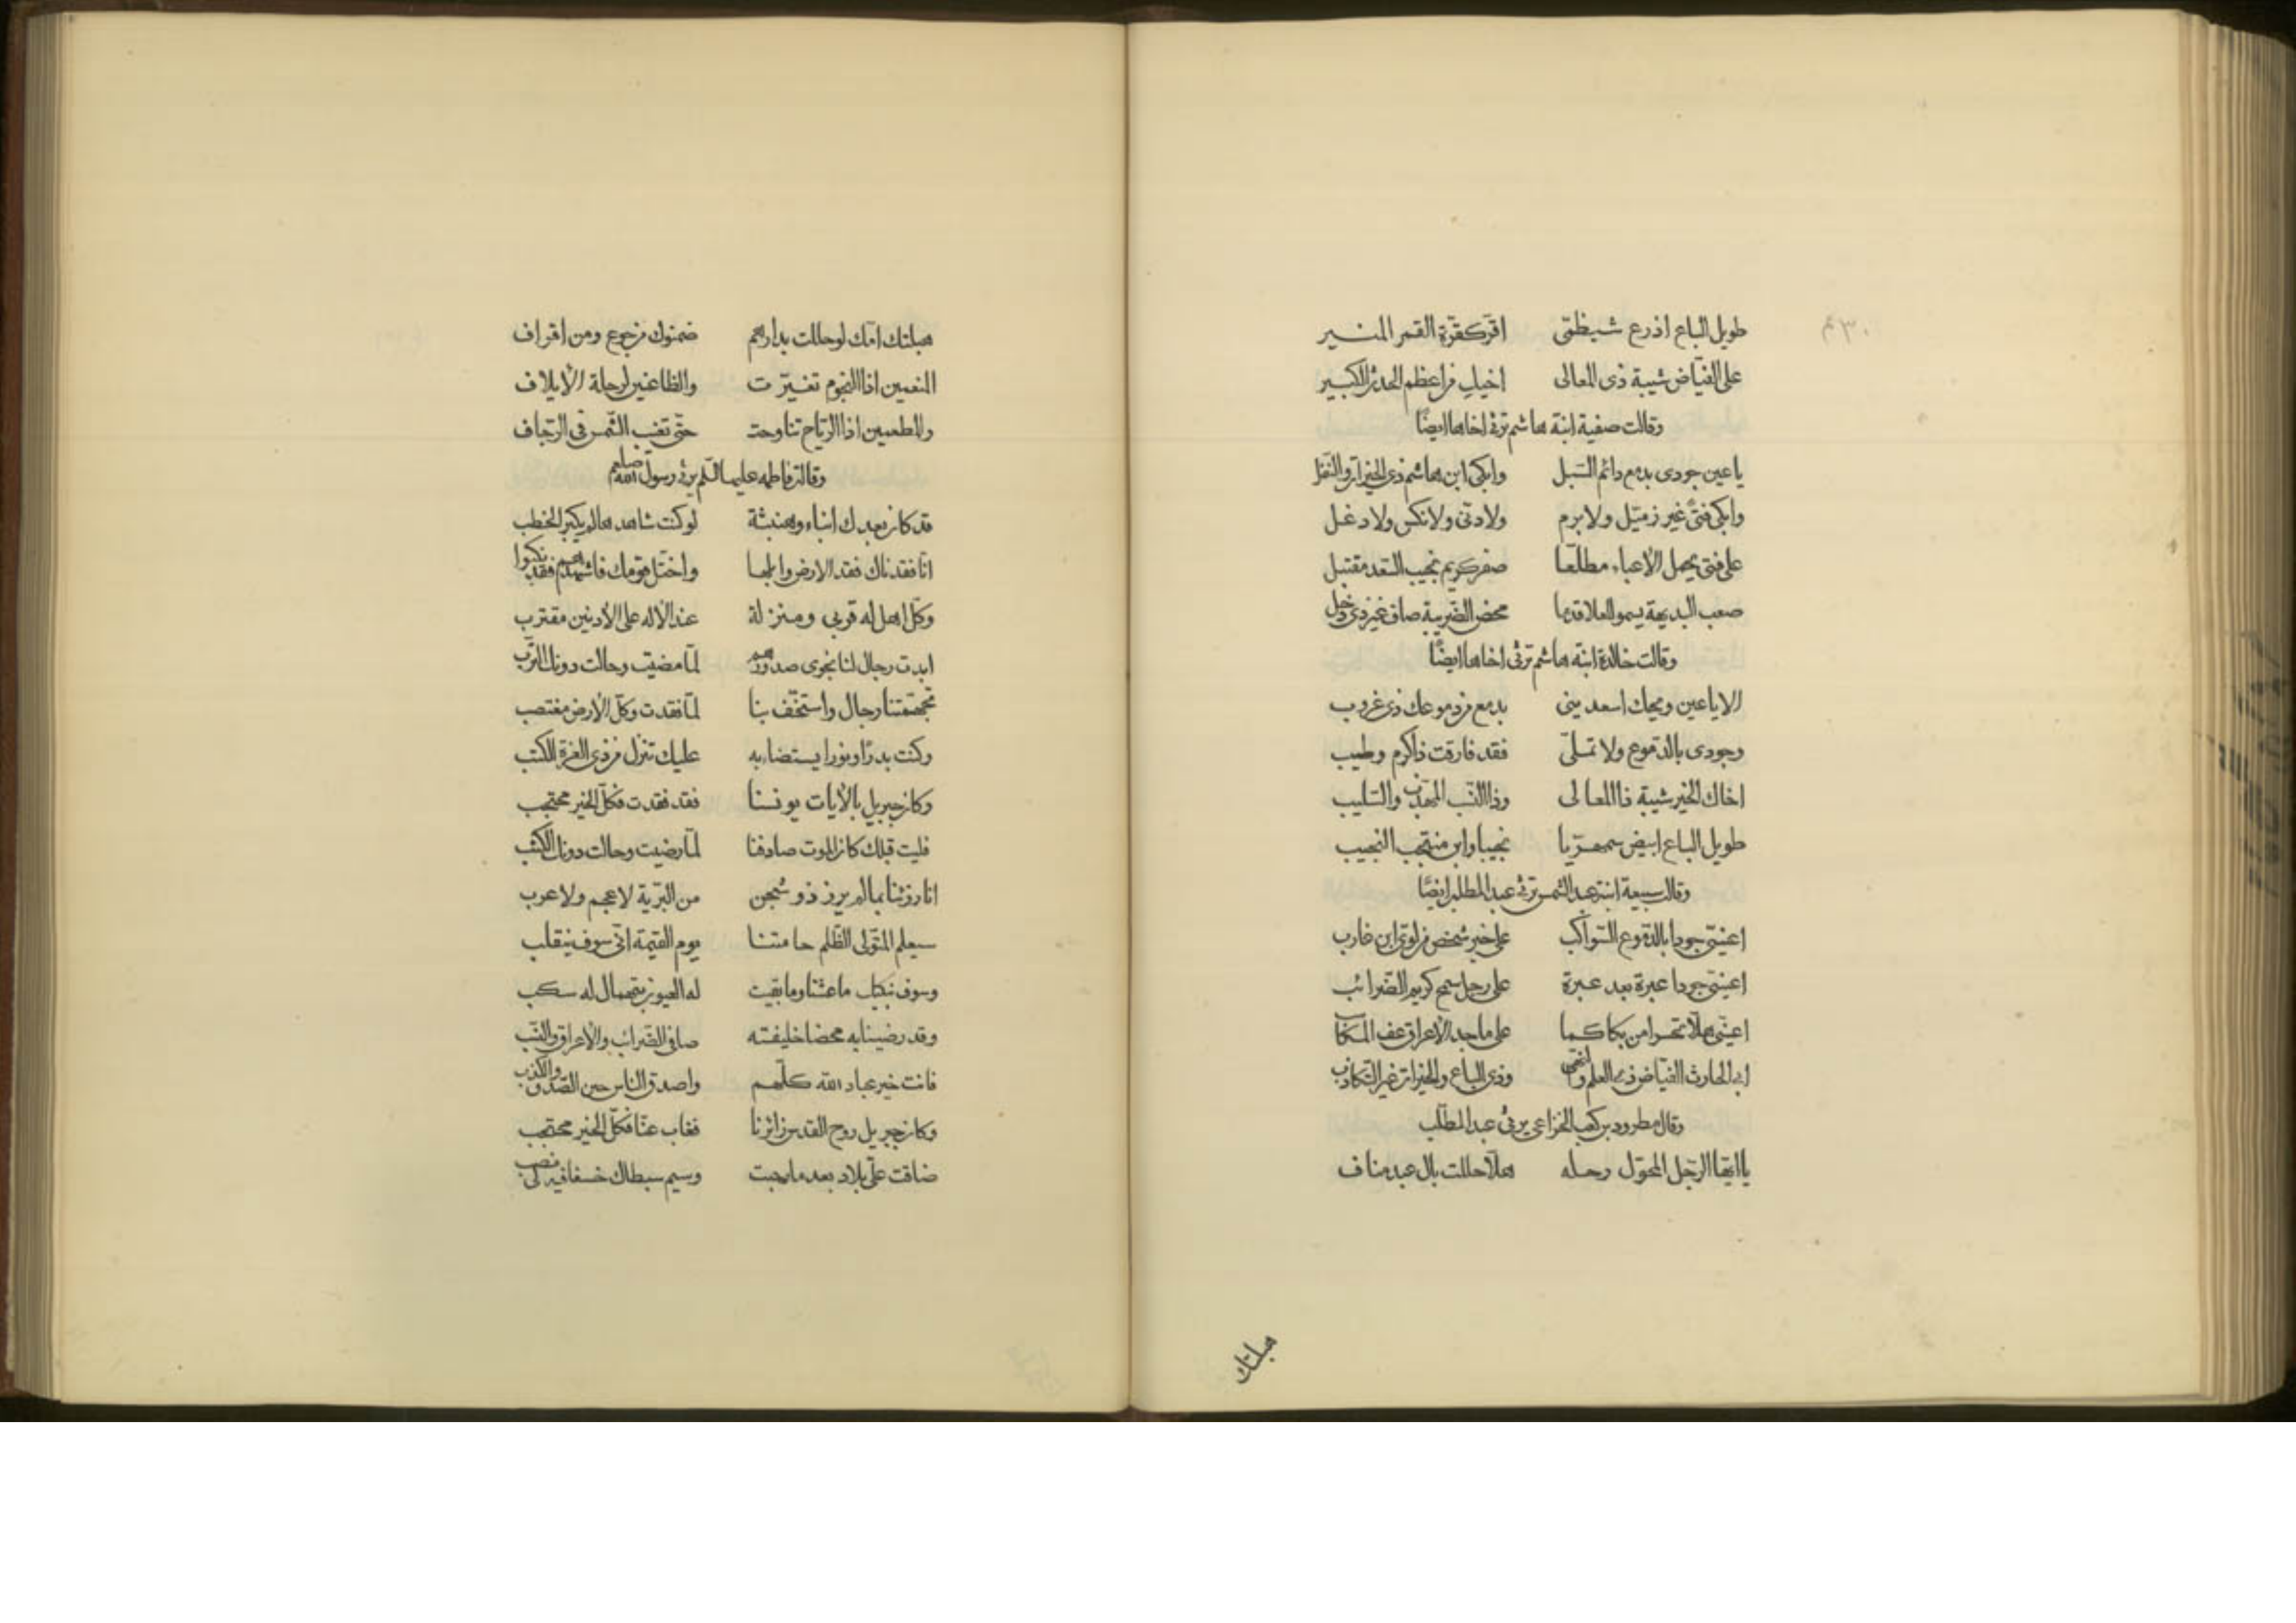 طويل الباع اذرع شيظمّى اقرّ كغرّة القمر المنير
على الفيّاض شيبة ذى المعالى
وقالت صفية ابنة هاشم ترثى اخاها ايضًا
يا عين جودى بدمع دائم السبل وابكى ابن هاشم ذى الخيرات والنفل
وابكى فتًى غير زمّيل ولا برم ولا دنى ولا نكس ولا دغل
على فتى يحمل الأعباء مطلعًا صقر كريم نجيب السعد مقتبل
صعب البديهة يسمو للعلا قدما محض الضريبة صاف غير ذى دخل
وقالت خالدة ابنة هاشم ترثى اخاها ايضًا
الا يا عين ويحك اسعدينى بدمع من دموعك ذى غروب
وجودى بالدّموع ولا تملّى فقد فارقت ذا كرم وطيب
اخاك الخير شيبة ذا المعالى وذا النسب المهذّب والسليب
طويل الباع ابيض سمهريا نجيبا وابن منتجب النجيب
وقالت سبيعة ابنة عبد الشمس ترثى عبد المطلب ايضًا
اعينىّ جودا بالدموع السواكب على خير شخص من لوى ابن غارب
اعينىّ جودا عبرة بعد عبرة على رجل سمح كريم الضرائب
اعينىّ هلّا تحسرا من بكاكما على ماجد الأعراق عف المكاسب
ابى الحارث الفيّاض ذى العلم والنهى وذى الباع والخيرات غير التكاذب
وقال مطرود بن كعب الخزاعى يرثى عبد المطّلب
يا ايّها الرّجل المحوّل رحله هلّا حللت بال عبد مناف
هبلتك
هبلتك امّك لو حللت بدارهم ضمنوك من جوع ومن اقراف
المنعمين اذا النجوم تغيّرت والظاعنين لرحلة الأيلاف
والمطعمين اذا الرّياح تناوحت حتّى تغيب الشّمس فى الرّجّاف
وقالت فاطمه عليها السّلم يرثى رسول الله صلعم
قد كان بعدك انباء وهنبثة لو كنت شاهدها لم يكبر الخطب
انّا فقدناك فقد الارض وابلها واختلّ قومك فاشهدهم فقد نكبوا
وكلّ اهل له قربى ومنزلة عند الأله على الأدنين مقترب
ابدت رجال لنا نجوى صدورهم لمّا مضيت وحالت دونك التّرب
تجهّمتنا رجال واستخفّ بنا لمّا فقدت وكلّ الأرض مغتصب
وكنت بدرًا ونورا يستضاء به عليك تنزل من ذى العزة الكتب
وكان جبريل بالأيات يونسنا فقد فقدت فكلّ الخير محتجب
فليت قبلك كان الموت صادفنا لمّا مضيت وحالت دونك الكثب
انّا رزئنا بما لم يرز ذو شجن من البريّة لا عجم ولا عرب
سيعلم المتولّى الظّلم حامتنا يوم القيمة انّى سوف ينقلب
وسوف نبكيك ما عشنا وما بقيت له العيون بتهمال له سكب
وقد رضينا به محضا خليفته صافى الضّرائب والأعراق والنّسب
فانت خير عباد الله كلّهم واصدق الناس حين الصّدق والكذب
وكان جبريل روح القدس زائرنا فغاب عنّا فكلّ الخير محتجب
ضاقت علىّ بلاد بعد ما رحبت وسيم سبطاك خسفا فيه لى نصب